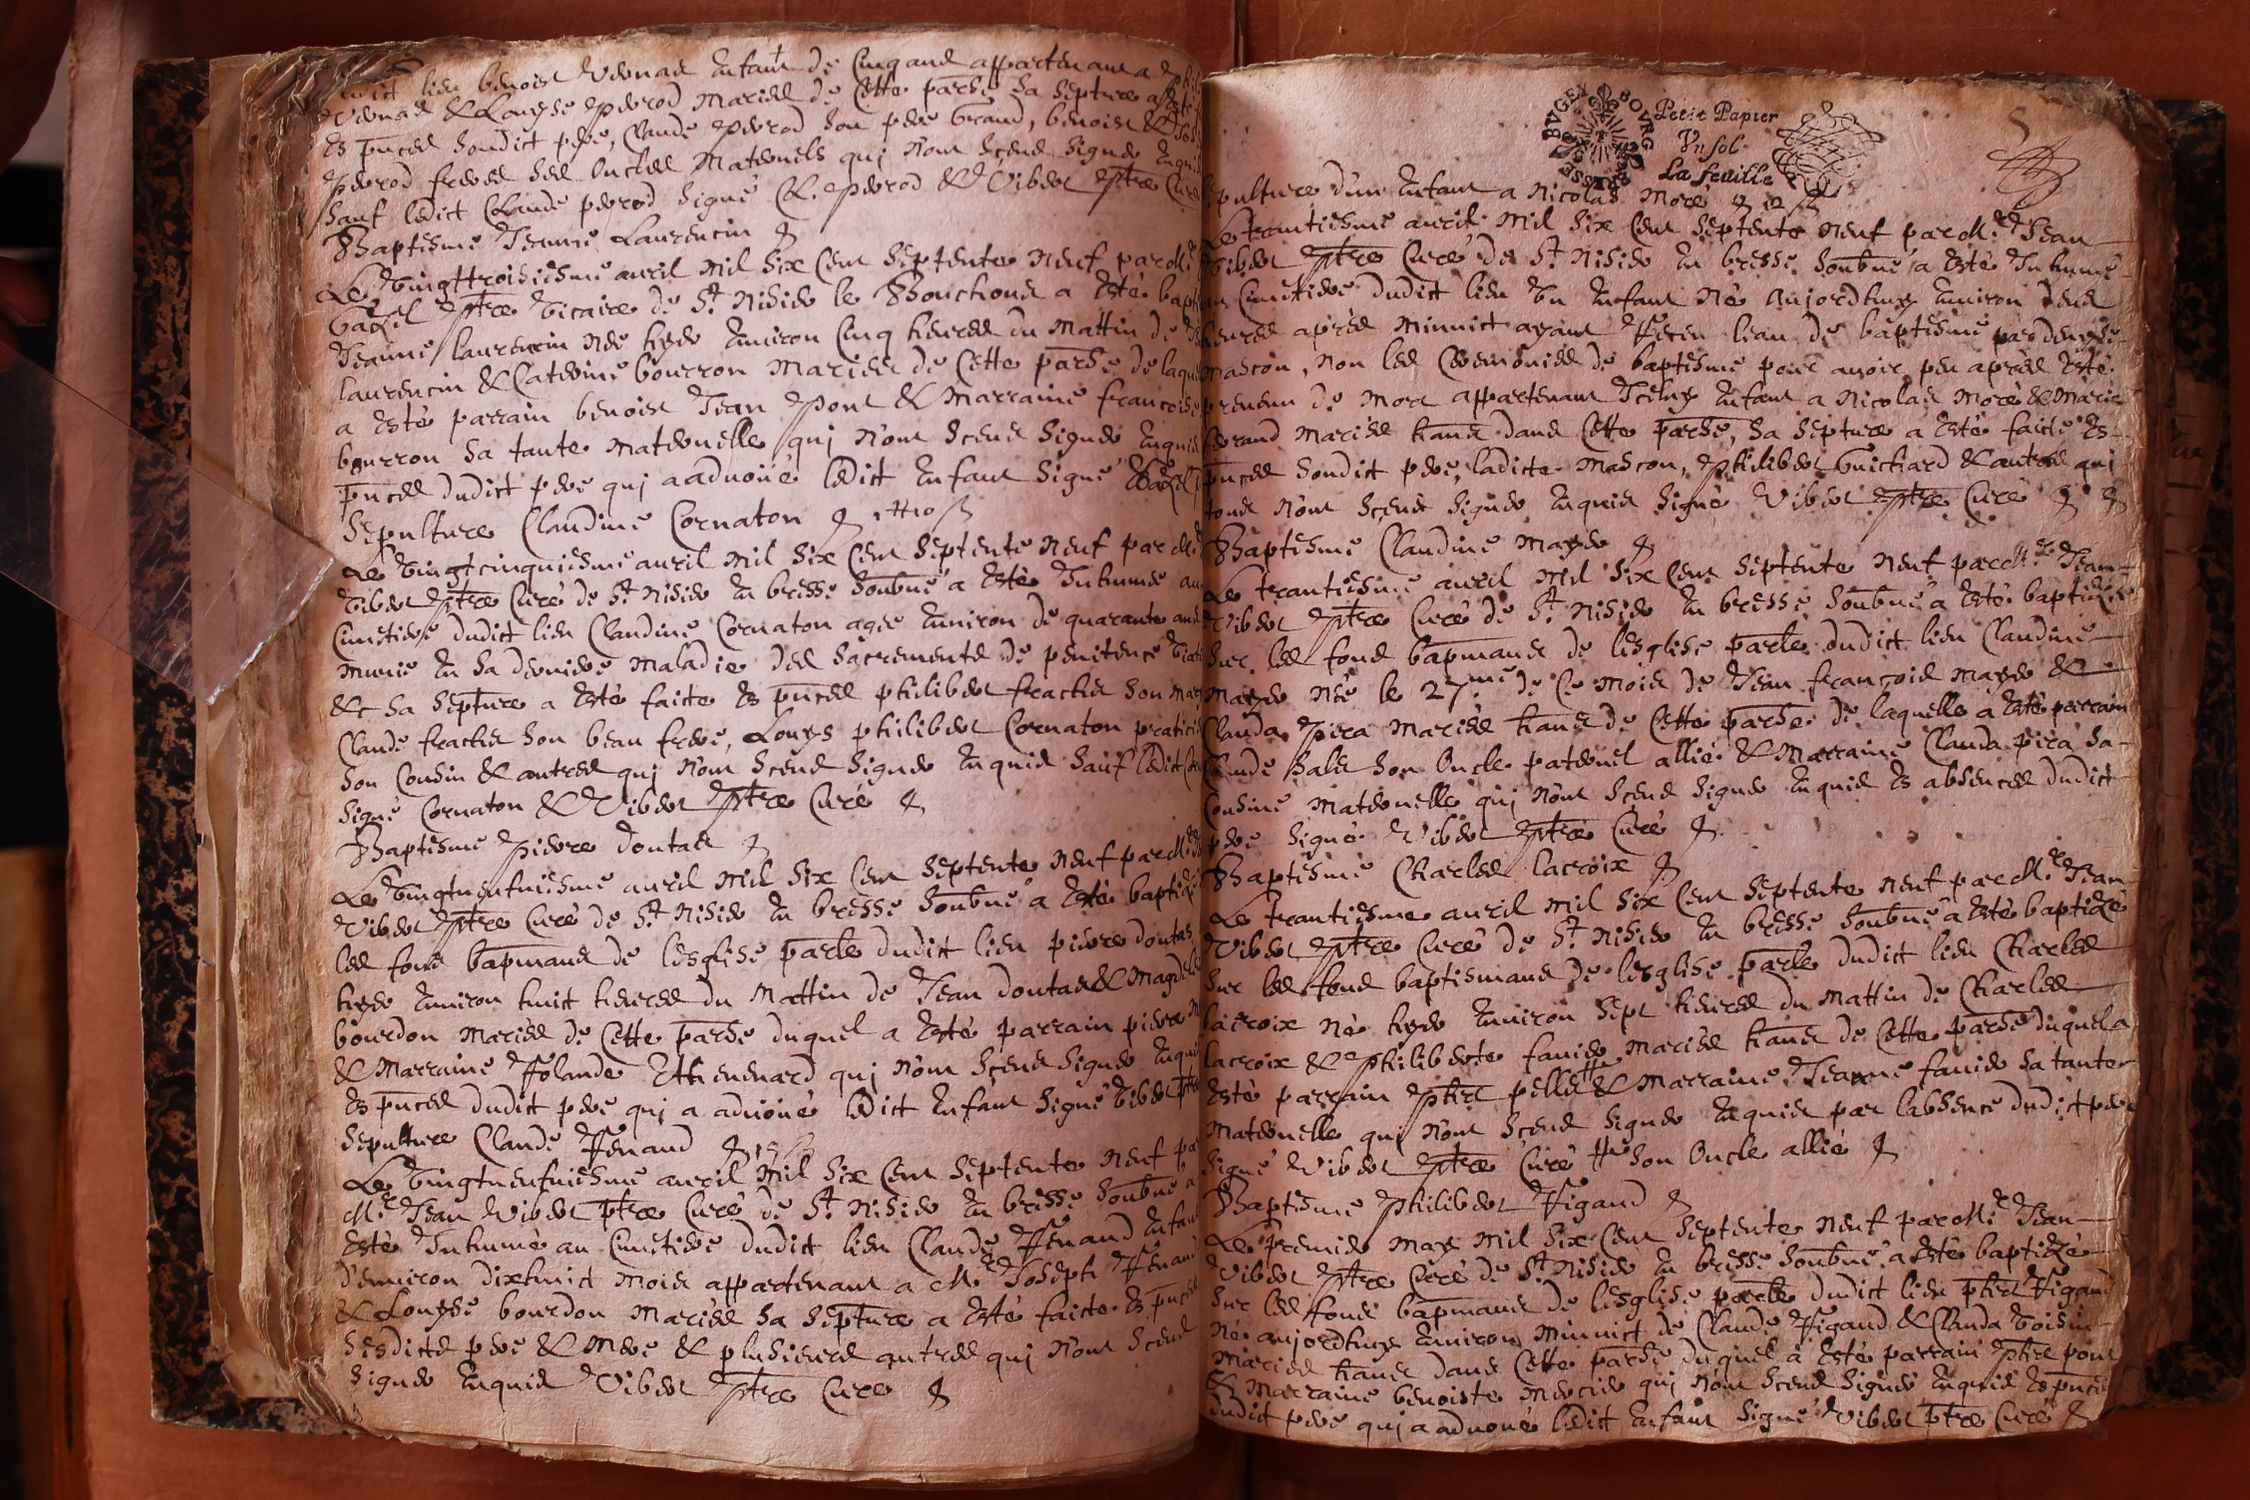 dict lieu benoist Vienad Enfant de Cinq ans appartenant a
Vienad & Louyse perrod Mariés de Cette parshe Sa Septure a esté
Es pnces Sondict pere, Claude perrod Son pere Grand, benoist &
perrod freres Ses Oncles Maternels qui N'ont Sceus Signer Enquis
Sauf ledict Claude perrod Signé Cl. perrod & Viber ptre Curé
Baptesme Jeanne Laurencin
Le Vingttroisiesme auril Mil Six Cent Septente Neuf par Mre
bazel ptre Vicaire de St Nisier le Bouchoud a Esté bapt
Jeanne laurencin née hyer Enuiron Cinq heures du Mattin de
laurencin & Catherine bourron Mariés de Cette parshe de laqu
a Esté parrain benoist Jean pont & Marraine francoise
bourron Sa tante Maternelle qui N'ont Sceus Signer Enquis
pnces dudict pere qui a aduoüé ledict Enfant Signé Bazel
Sepulture Claudine Cornaton
Le Vingtcinquiesme auril Mil Six Cent Septente Neuf par Mre
Viber ptre Curé de St Nisier En bresse Soubné a Esté Inhumée au
Cimetiere dudict lieu Claudine Cornaton agée Enuiron de quarante ans
Munie En Sa derniere Maladie des Sacrements de penitence
&c Sa Septure a Esté faicte Es pnces philiber frachet Son mary
Claude frachet Son beau frere, Louys philiber Cornaton praticien
Son Cousin & autres qui N'ont Sceus Signer Enquis Sauf ledict
Signé Cornaton & Viber ptre Curé
Baptesme pierre doutad
Le Vingtneufuiesme auril Mil Six Cent Septente Neuf par Mre
Viber ptre Curé de St Nisier En bresse Soubné a Esté baptizé
les fonds bapmaus de lesglise parle dudict lieu pierre doutad
hyer Enuiron huict heures du Mattin de Jean doutad &
bourdon Mariés de Cette parshe duquel a Esté parrain pierre
& Marraine Yolande Theuenard qui N'ont Sceus Signer Enquis
Es pnces dudict pere qui a aduoüé ledict Enfant Signé Viber ptre
Sepulture Claude Fenand
Le Vingtneufuiesme auril Mil Six Cent Septente Neuf par
Mre Jean Viber ptre Curé de St Nisier En bresse Soubné a
Esté Inhumé au Cimetiere dudict lieu Claude Fenand Enfant
d'enuiron dixhuict Mois appartenant a Mre Joseph Fenand
& Louyse bourdon Mariés Sa Septure a Esté faicte Es pnces
Sesdicts pere & Mere & plusieurs autres qui N'ont Sceus
Signer Enquis Viber ptre Curé
BRESSE BVGEY BOVRG
Petit Papier
Vn sol
La feuille
Sepulture d'un Enfant a Nicolas More
Le trantiesme auril Mil Six Cent Septente Neuf par Mre Jean
Viber ptre Curé de St Nisier En bresse Soubné a Esté Inhumé
au Cimetiere dudict lieu Un Enfant Né Aujordhuy Enuiron deux
heures apres Minuict ayant Receu leau de baptesme par denyse
Mascon, Non les Ceremonies de baptesme pour auoir peu apres Esté
preuenu de Mort appartenant Iceluy Enfant a Nicolas More & Marie
Morand Mariés hans dans Cette parshe, Sa Septure a Esté faicte Es
pnces Sondict pere, ladicte Mascon, philiber Guichard & autres qui
tous N'ont Sceus Signer Enquis Signé Viber ptre Curé
Baptesme Claudine Mayer
Le trantiesme auril Mil Six Cent Septente Neuf par Mre Jean
Viber ptre Curé de St Nisier En bresse Soubné a Esté baptizée
Sur les fonds bapmaus de lesglise parle dudict lieu Claudine
Mayer Née le 27me de Ce mois de Jean francois Mayer &
Clauda pira Mariés hans de Cette parshe de laquelle a Esté parrain
Claude Sales Son Oncle paternel allié & Marraine Clauda pira Sa
Cousine Maternelle qui N'ont Sceus Signer Enquis Es absences dudict
pere Signé Viber ptre Curé
Baptesme Charles lacroix
Le trantiesme auril Mil Six Cent Septente Neuf par Mre Jean
Viber ptre Curé de St Nisier En bresse Soubné a Esté baptizé
Sur les fonds baptismaus de lesglise parle dudict lieu Charles
lacroix Né hyer Enuiron Sept heures du Mattin de Charles
lacroix & philiberte fauier Mariés hans de Cette parshe duquel a
Esté parrain pher pelles & Marraine Jeanne fauier Sa tante
Maternelle qui N'ont Sceus Signer Enquis par labsence dudict pere
Signé Viber ptre Curé Son Oncle allié
Baptesme philiber Figand
Le premier May Mil Six Cent Septente Neuf par Mre Jean
Viber ptre Curé de St Nisier En bresse Soubné a Esté baptizé
Sur les fonds bapmaus de lesglise parle dudict lieu pher Figand
Né aujordhuy Enuiron Minuict de Claude Figand & Clauda Voisin
Mariés hans dans Cette parshe duquel a Esté parrain pher pont
& Marraine benoiste Mercier qui N'ont Sceus Signer Enquis Es pnces
dudict pere qui a aduoüé ledict Enfant Signé Viber ptre Curé